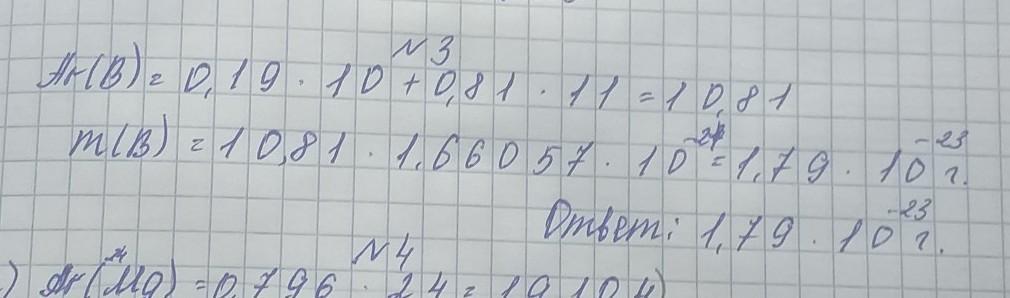 №3
Ar(B) = 0,19 · 10 + 0,81 · 11 = 10,81
m(B) = 10,81 · 1,66057 · 10⁻²⁴ = 1,79 · 10⁻²³ г.
Ответ: 1,79 · 10⁻²³ г.
№4
) Ar(²⁴Mg) = 0,796 · 24 = 19,104)